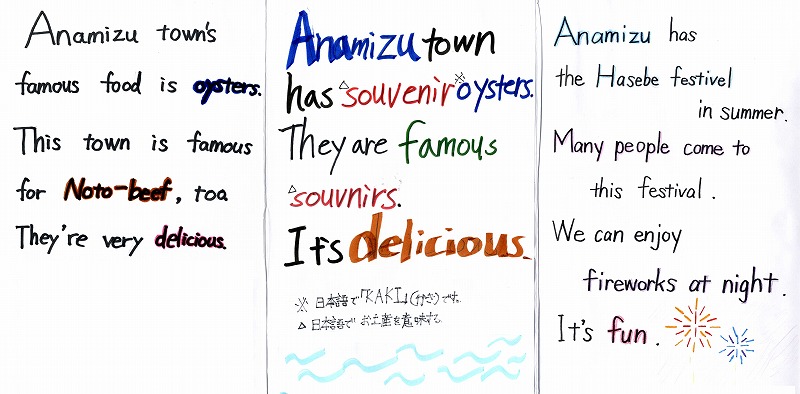 Anamizu town's
famous food is oysters.
This town is famous
for Noto-beef, toa
They're very delicious.
Anamizu town
has △souvenir ※oysters.
They are famous
△souvnirs.
It's delicious.
※ 日本語で「KAKI」(かき)です。
△ 日本語で お土産を意味する。
Anamizu has
the Hasebe festivel
in summer.
Many people come to
this festival.
We can enjoy
fireworks at night.
It's fun.